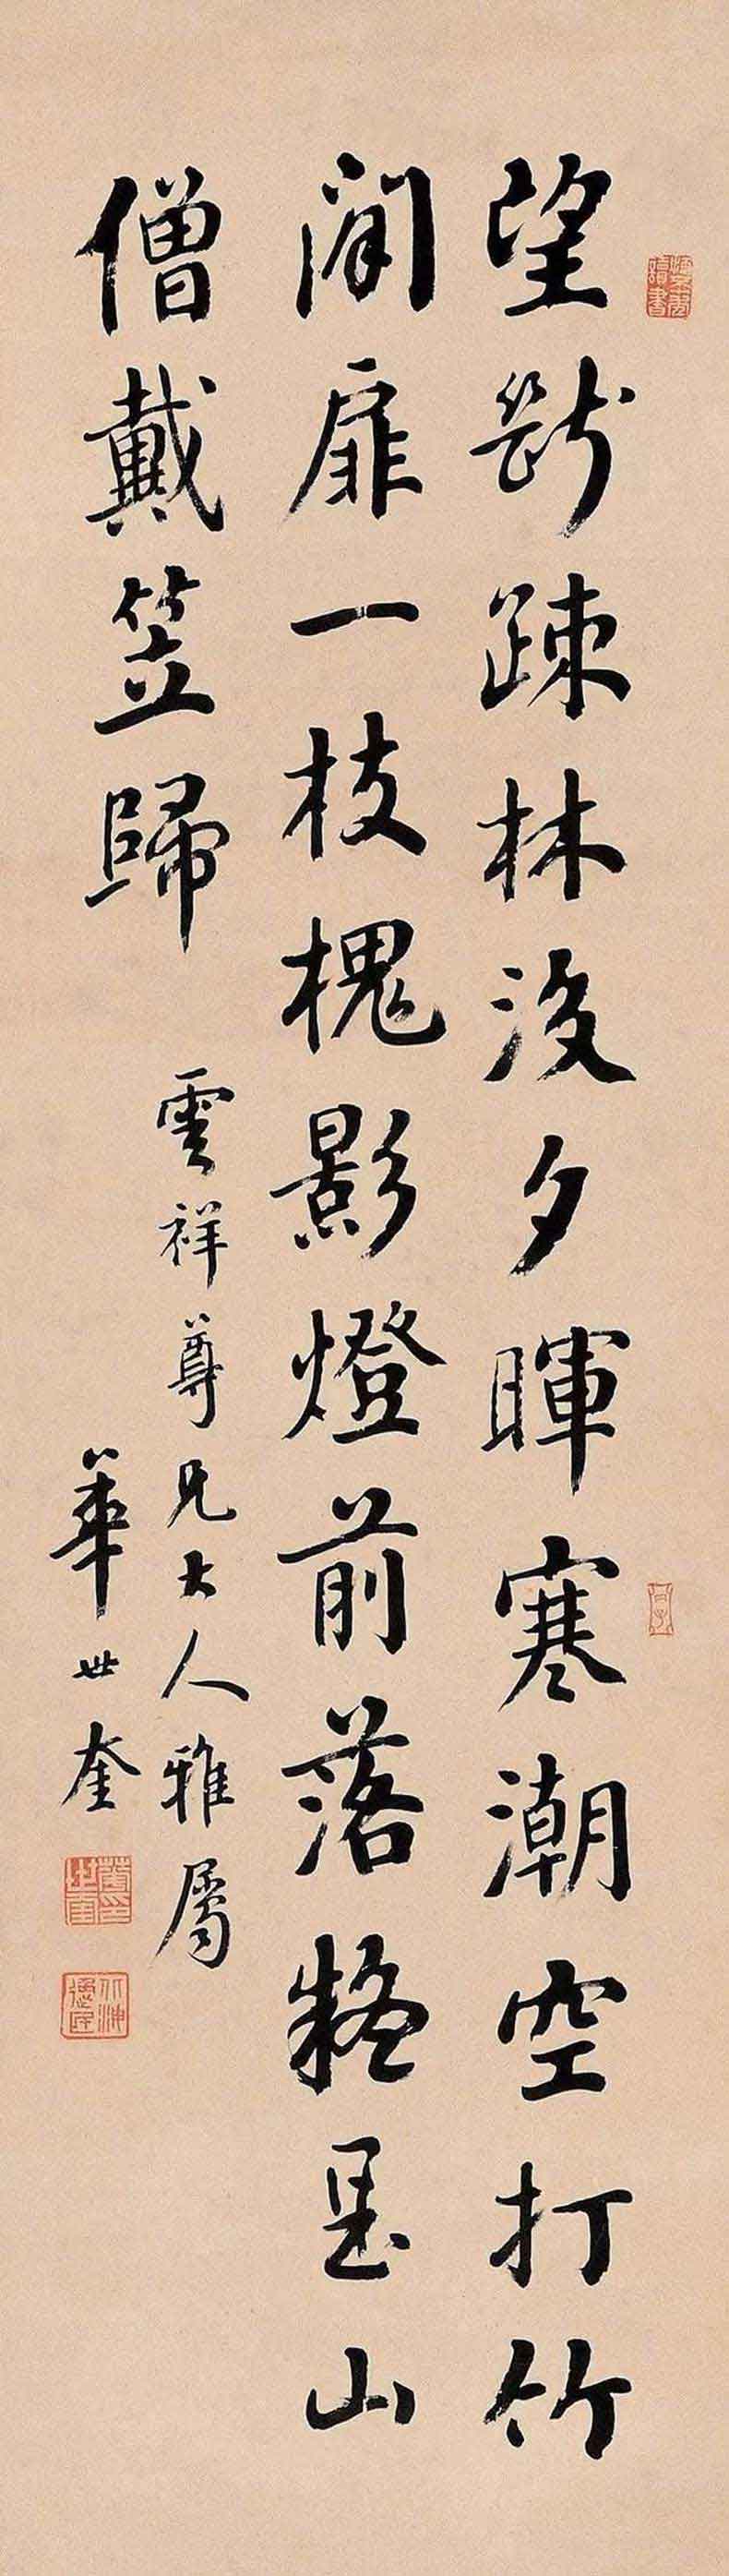 望斷疎林没夕暉寒潮空打竹
間扉一枝槐影燈前落疑是山
僧戴笠歸
雲祥尊兄大人雅屬
華世奎